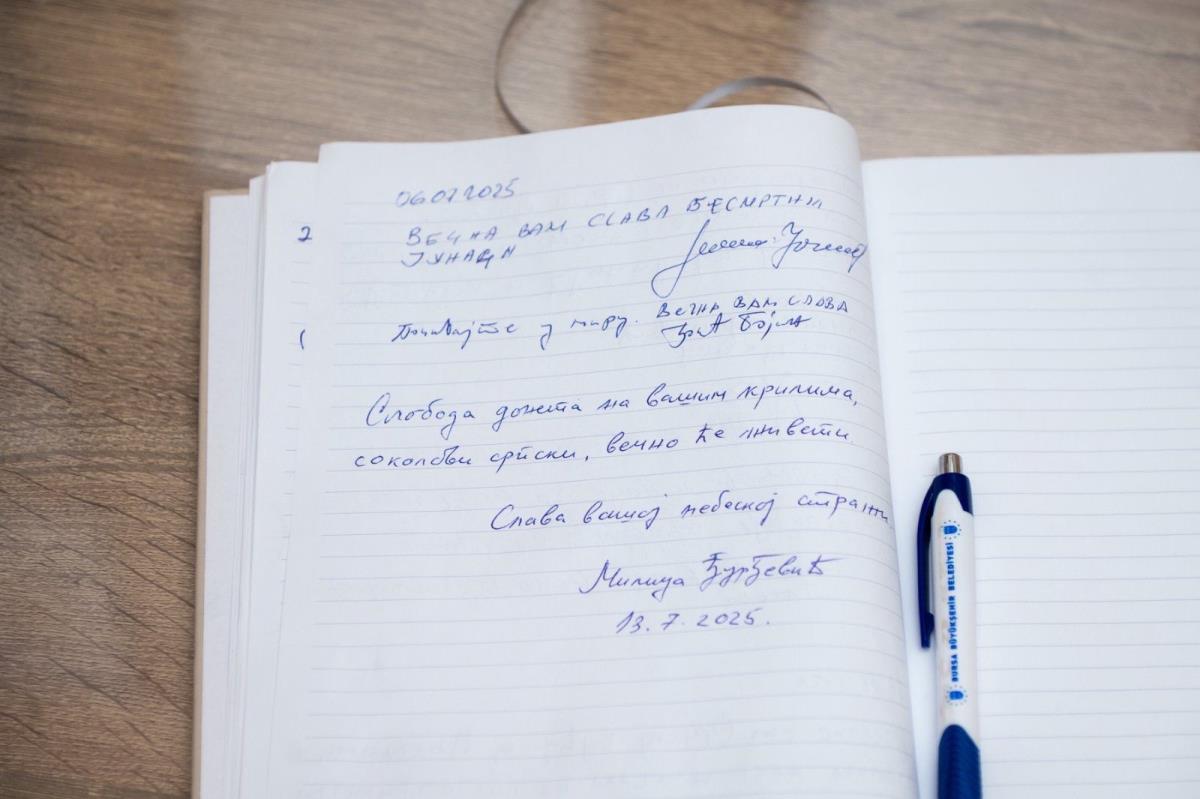 06.07.2025
2
ВЕЧНА ВАМ СЛАВА БЕСМРТНИ
ЈУНАЦИ
Почивајте у миру. ВЕЧНА ВАМ СЛАВА
Слобода донета на вашим крилима,
соколови српски, вечно ће живети.
Слава вашој небеској стражи.
Милица Ђурђевић
13.7.2025.
BURSA BÜYÜKŞEHİR BELEDİYESİ